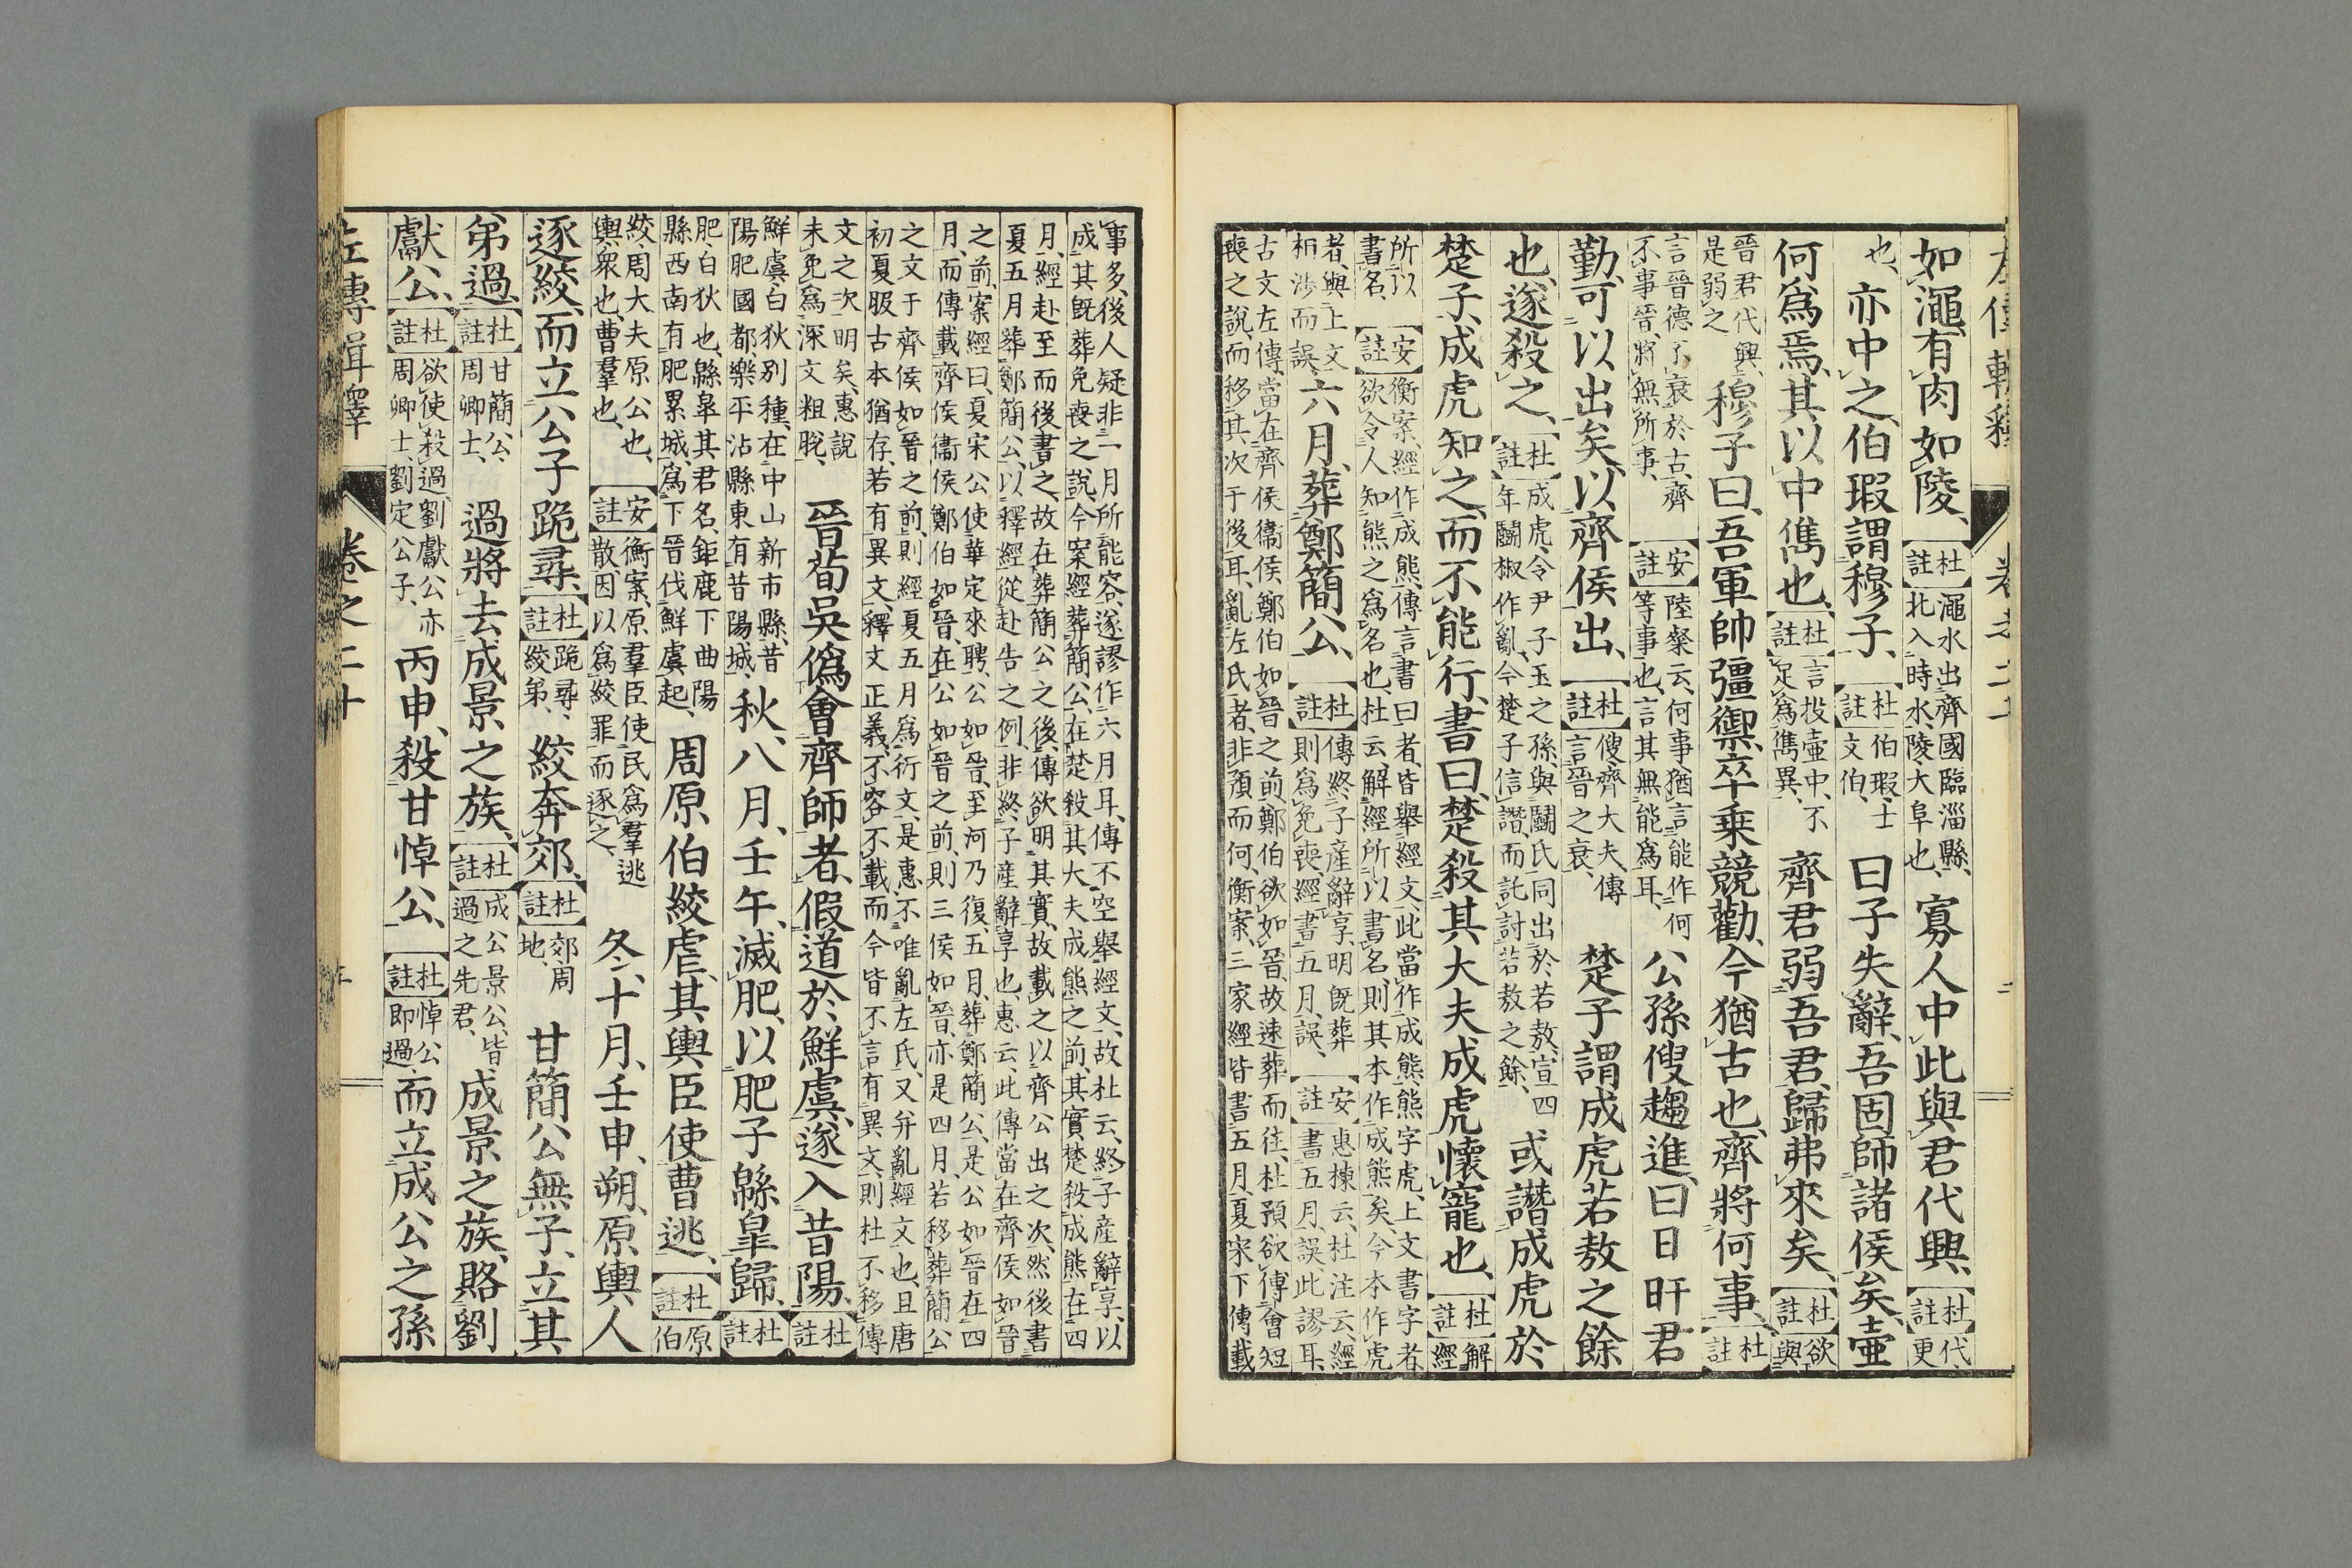 左傳輯釋 卷之二十 二
如澠、有肉如陵、【杜註】澠水出齊國臨淄縣、北入時水、陵大阜也、寡人中此、與君代興、【杜註】代、更
也、亦中之、伯瑕謂穆子、【杜註】伯瑕、士文伯、曰子失辭、吾固師諸侯矣、壷
何爲焉、其以中儁也、【杜註】言投壷中、不足爲儁異、齊君弱吾君、歸弗來矣、【杜註】欲與
晉君代興、是弱之、穆子曰、吾軍帥彊禦、卒乗競勸、今猶古也、齊將何事、【杜註】
言晉德不衰於古、齊不事晉、將無所事、【安註】陸粲云、何事、猶言能作何等事也、言其無能爲耳、公孫傁趨進、曰日旰君
勤、可以出矣、以齊侯出、【杜註】傁、齊大夫、傳言晉之衰、楚子謂成虎若敖之餘
也、遂殺之、【杜註】成虎、令尹子玉之孫、與鬭氏同出於若敖、宣四年鬭椒作亂、今楚子信譖、而託討若敖之餘、或譖成虎於
楚子、成虎知之、而不能行、書曰、楚殺其大夫成虎、懷寵也、【杜註】解經
所以書名、【安註】衡案、經作成熊、傳言書曰者、皆舉經文、此當作成熊、熊字虎、上文書字者、欲令人知熊之爲名也、杜云、解經所以書名、則其本作成熊矣、今本作虎
者、與上文相渉而誤、六月、葬鄭簡公、【杜註】傳終子產辭享、明既葬則爲免喪、經書五月、誤、【安註】惠棟云、杜注云、經書五月、誤、此謬耳、
古文左傳、當在齊侯衞侯鄭伯如晉之前、鄭伯欲如晉、故速葬而往、杜預欲傅會短
喪之說、而移其次于後耳、亂左氏者、非預而何、衡案、三家經皆書五月、夏宋下傳載
事多、後人疑非一月所能容、遂謬作六月耳、傳不空舉經文、故杜云、終子產辭享、以
成其既葬免喪之說、今案經葬簡公、在楚殺其大夫成熊之前、其實楚殺成熊在四
月、經赴至而後書之、故在葬簡公之後、傳欲明其實、故載之以齊公出之次、然後書
夏五月葬鄭簡公、以釋經從赴告之例、非終子產辭享也、惠云、此傳當在齊侯如晉
之前、案經曰、夏宋公使華定來聘、公如晉、至河乃復、五月、葬鄭簡公、是公如晉在四
月、而傳載齊侯衞侯鄭伯如晉、在公如晉之前、則三侯如晉、亦是四月、若移葬簡公
之文于齊侯如晉之前、則經夏五月爲衍文、是惠不唯亂左氏、又并亂經文也、且唐
初夏服古本猶存、若有異文、釋文正義、不容不載、而今皆不言有異文、則杜不移傳
文之次明矣、惠說未免爲深文粗脫、晉荀吳僞會齊師者、假道於鮮虞、遂入昔陽、【杜註】
鮮虞、白狄別種、在中山新市縣、昔陽、肥國都、樂平沾縣東有昔陽城、秋、八月、壬午、滅肥、以肥子緜皐歸、【杜註】
肥、白狄也、緜皐其君名、鉅鹿下曲陽縣西南有肥累城、爲下晉伐鮮虞起、周原伯絞虐、其輿臣使曹逃、【杜註】原伯
絞、周大夫原公也、輿、衆也、曹、羣也、【安註】衡案、原羣臣使民爲羣逃散、因以爲絞罪而逐之、冬、十月、壬申、朔、原輿人
逐絞、而立公子跪尋、【杜註】跪尋、絞弟、絞奔郊、【杜註】郊、周地、甘簡公無子、立其
弟過、【杜註】甘簡公、周卿士、過將去成景之族、【杜註】成公景公、皆過之先君、成景之族、賂劉
獻公、【杜註】欲使殺過、劉獻公亦周卿士、劉定公子、丙申、殺甘悼公、【杜註】悼公即過、而立成公之孫
左傳輯釋 卷之二十